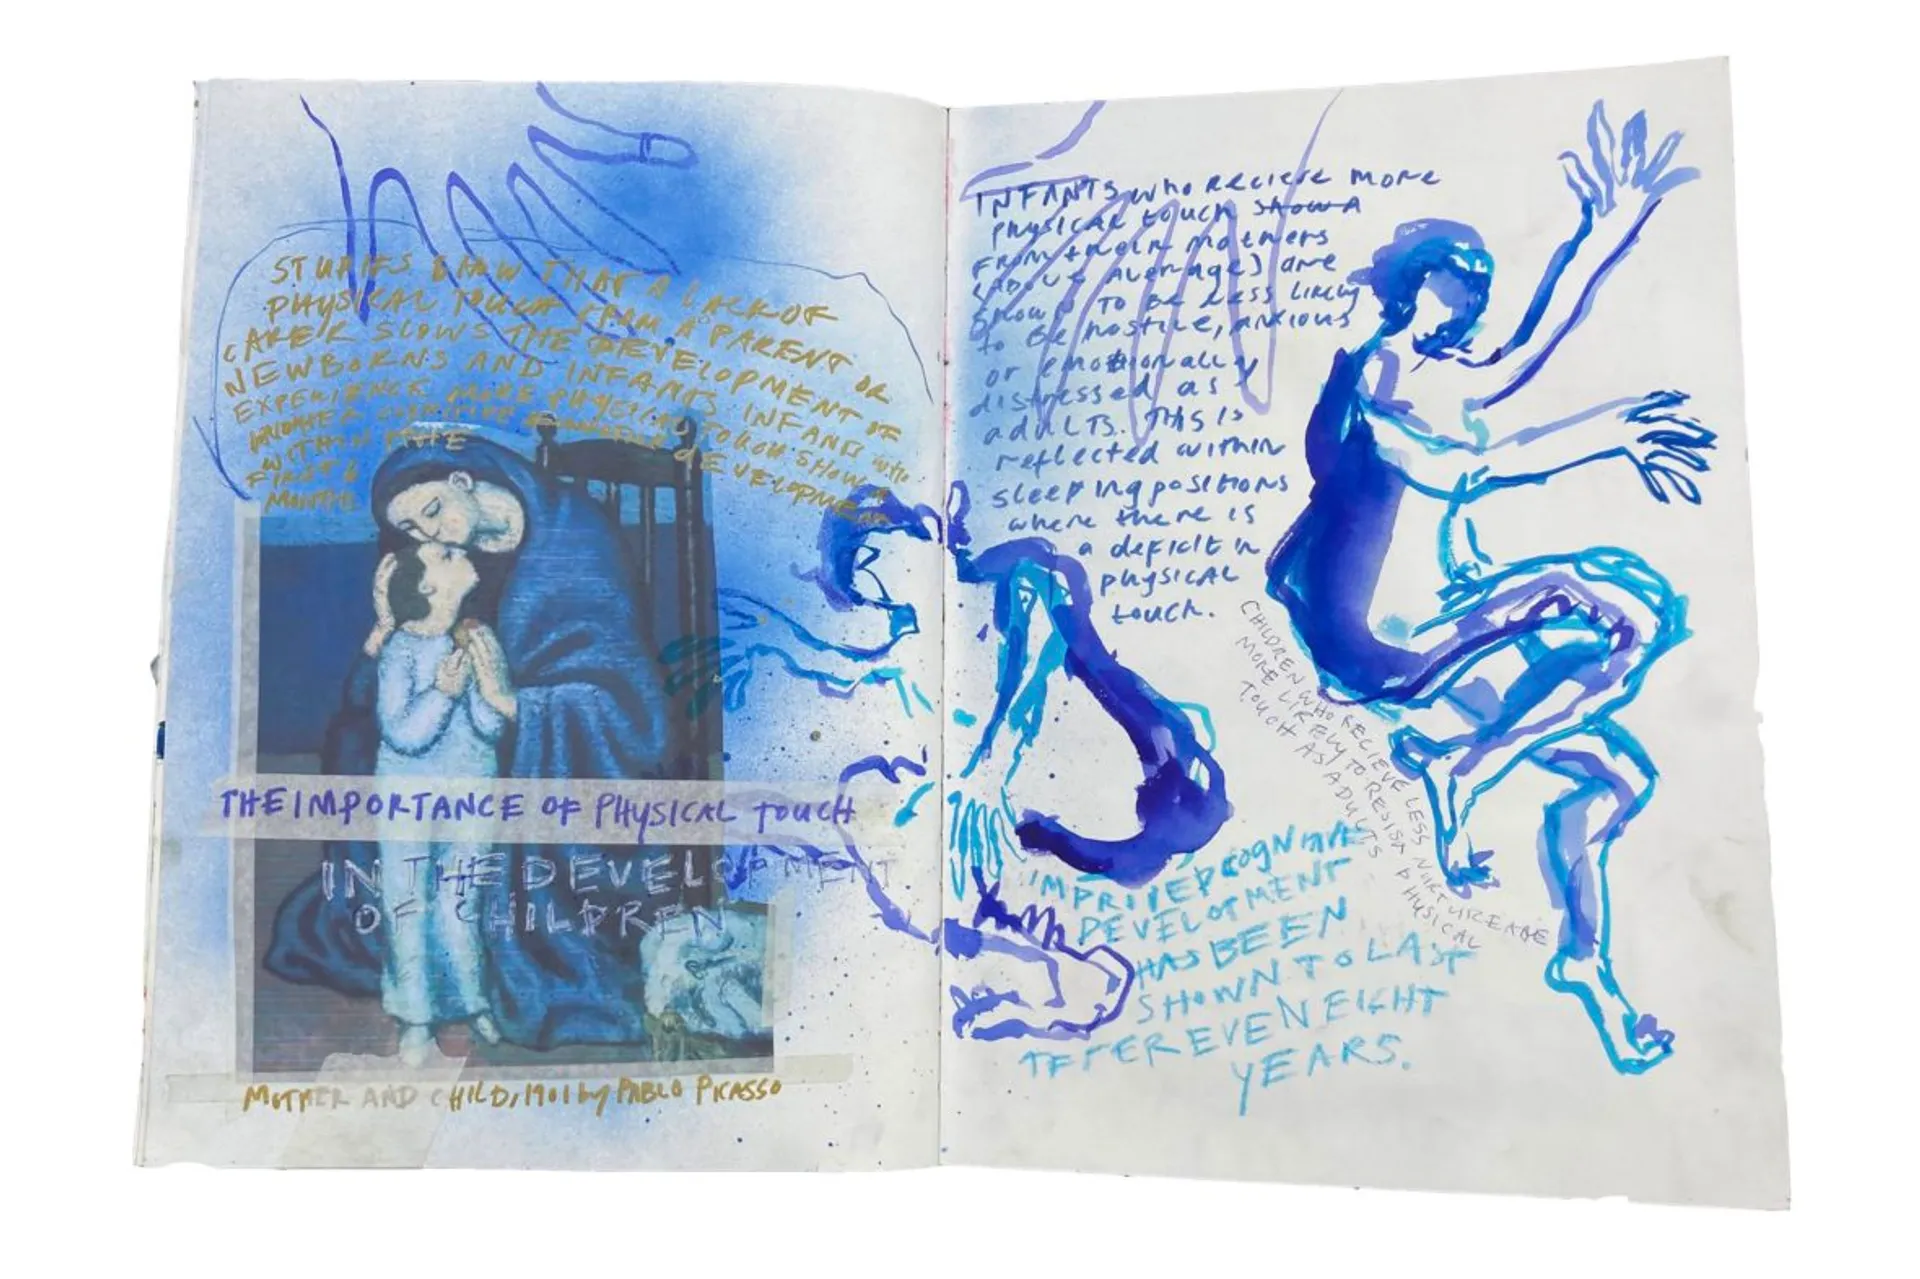 STUDIES SHOW THAT A LACK OF
PHYSICAL TOUCH FROM A PARENT OR
CARER SLOWS THE DEVELOPMENT OF
NEWBORNS AND INFANTS INFANTS who
EXPERIENCE MORE PHYSICAL TOUCH SHOW A
HIGHER COGNITIVE DEVELOPMENT
WITHIN
FIRST 6
MONTHS
THE IMPORTANCE OF PHYSICAL TOUCH
IN THE DEVELOPMENT
OF CHILDREN
MOTHER AND CHILD, 1901 by PABLO PICASSO
INFANTS who RECIEVE MORE
PHYSICAL touch show A
FROM their mothers
(above average) are
shown TO BE Less likely
to Be hostile, anxious
or emotionally
distressed as
adults. This is
reflected within
sleeping positions
where there is
a deficit in
physical
touch.
CHILDREN WHO RECIEVE LESS NURTURE ARE
MORE LIKELY TO RESIST PHYSICAL
TOUCH AS ADULTS
COGNITIVE
DEVELOTMENT
HAS BEEN
SHOWN TO LAST
AFTER EVEN EIGHT
YEARS.